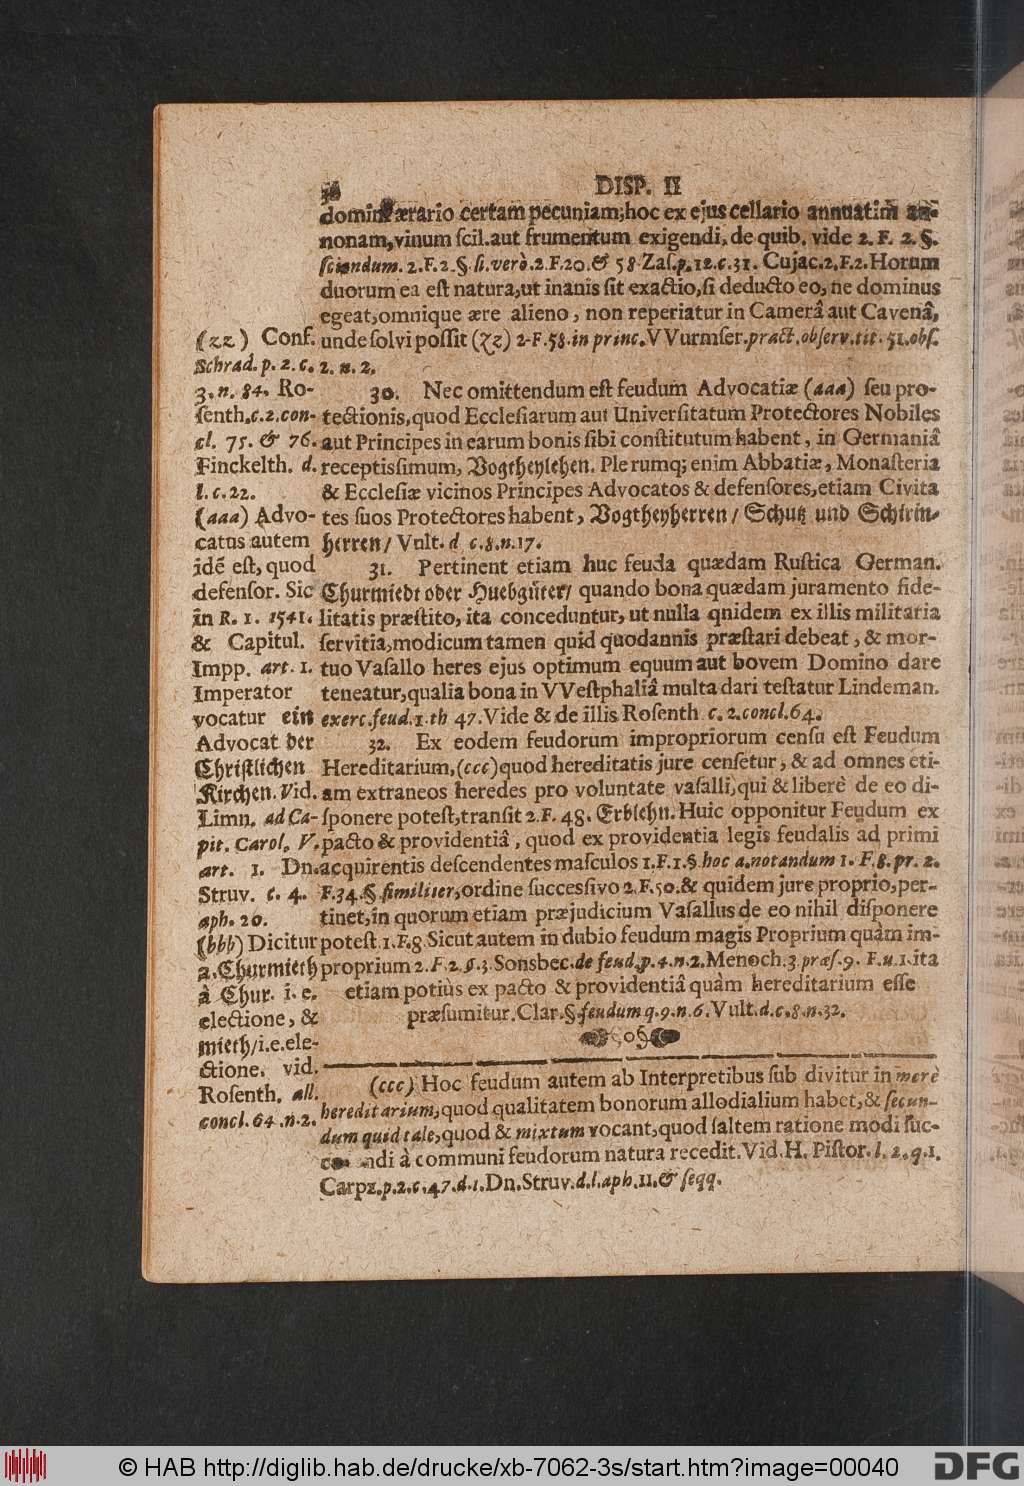 DISP. II
domini ærario certam pecuniam; hoc ex ejus cellario annuatim an-
nonam, vinum scil. aut frumentum exigendi, de quib. vide 2. F. 2. §.
sciendum. 2. F. 2. § si verò. 2. F. 20. & 58 Zas. p. 12. c. 31. Cujac. 2. F. 2. Horum
duorum ea est natura, ut inanis sit exactio, si deducto eo, ne dominus
egeat, omnique ære alieno, non reperiatur in Camerâ aut Cavenâ,
unde solvi possit (zz) 2-F. 58. in princ. VVurmser. pract. observ. tit. 51. obs.
2. n. 2.
30. Nec omittendum est feudum Advocatiæ (aaa) seu pro-
tectionis, quod Ecclesiarum aut Universitatum Protectores Nobiles
aut Principes in earum bonis sibi constitutum habent, in Germaniâ
receptissimum, Vogtheylehen. Plerumq; enim Abbatiæ, Monasteria
& Ecclesiæ vicinos Principes Advocatos & defensores, etiam Civita
tes suos Protectores habent, Vogtheyherren / Schutz und Schirm-
herren / Vult. d c. 8. n. 17.
31. Pertinent etiam huc feuda quædam Rustica German.
Churmiedt oder Huebgüter / quando bona quædam juramento fide-
litatis præstito, ita conceduntur, ut nulla qnidem ex illis militaria
servitia, modicum tamen quid quodannis præstari debeat, & mor-
tuo Vasallo heres ejus optimum equum aut bovem Domino dare
teneatur, qualia bona in VVestphaliâ multa dari testatur Lindeman.
exerc. feud. 1. th 47. Vide & de illis Rosenth c. 2. concl. 64.
32. Ex eodem feudorum impropriorum censu est Feudum
Hereditarium, (ccc) quod hereditatis jure censetur, & ad omnes eti-
am extraneos heredes pro voluntate vasalli, qui & liberè de eo di-
sponere potest, transit 2. F. 48. Erblehn. Huic opponitur Feudum ex
pacto & providentiâ, quod ex providentia legis feudalis ad primi
acquirentis descendentes masculos 1. F. 1. §. hoc a. notandum 1. F. 8. pr. 2.
F. 34. §. similiter, ordine successivo 2. F. 50. & quidem jure proprio, per-
tinet, in quorum etiam præjudicium Vasallus de eo nihil disponere
potest. 1. F. 8 Sicut autem in dubio feudum magis Proprium quàm im-
proprium 2. F. 2. §. 3. Sonsbec. de feud. p. 4. n. 2. Menoch. 3 præs. 9. F. u. 1. ita
etiam potiùs ex pacto & providentiâ quàm hereditarium esse
præsumitur. Clar. §. feudum q. 9. n. 6. Vult. d. c. 8. n. 32.
(zz) Conf.
Schrad. p. 2. c.
3. n. 84. Ro-
senth. c. 2. con-
cl. 75. & 76.
Finckelth. d.
l. c. 22.
(aaa) Advo-
catus autem
idē est, quod
defensor. Sic
in R. I. 1541.
& Capitul.
Impp. art. 1.
Imperator
vocatur ein
Advocat der
Christlichen
Kirchen. Vid.
Limn. ad Ca-
pit. Carol. V.
art. 1. Dn.
Struv. c. 4.
aph. 20.
(bbb) Dicitur
a. Churmieth
à Chur. i. e.
electione, &
mieth / i. e. ele-
ctione. vid.
Rosenth. all.
concl. 64. n. 2.
(ccc) Hoc feudum autem ab Interpretibus sub divitur in merè
hereditarium, quod qualitatem bonorum allodialium habet, & secun-
dum quid tale, quod & mixtum vocant, quod saltem ratione modi suc-
à communi feudorum natura recedit. Vid. H. Pistor. l. 2. q. 1.
Carpz. p. 2. c. 47. d. 1. Dn. Struv. d. l. aph. 11. & seqq.
© HAB http://diglib.hab.de/drucke/xb-7062-3s/start.htm?image=00040
DFG